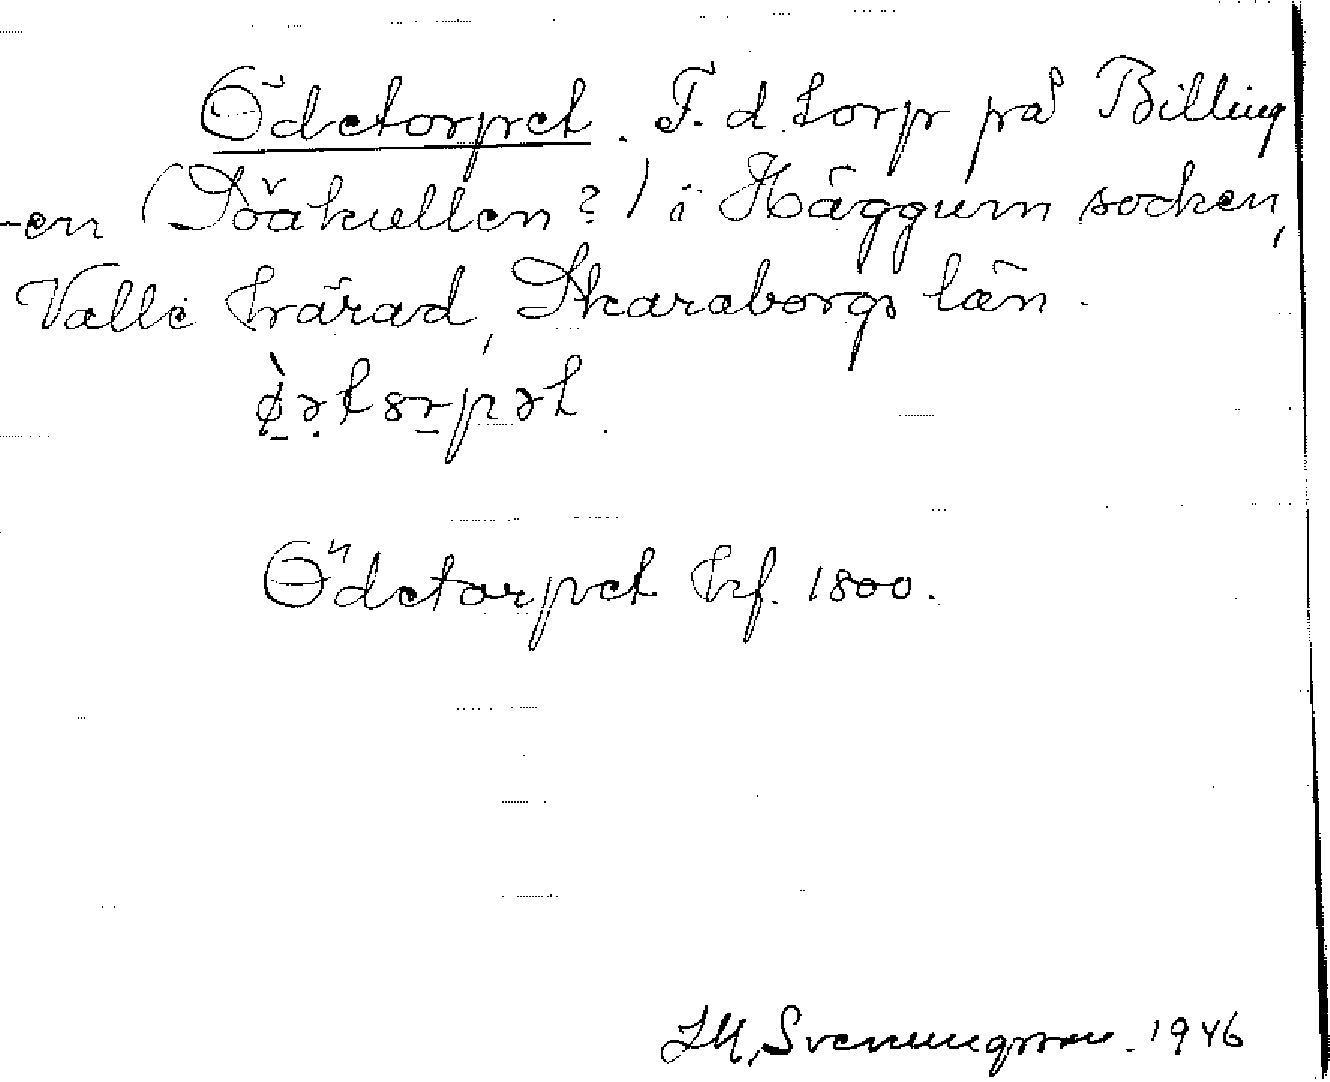 Ödetorpet. F.d. torp på Billing
-en (Döäkullen?) i Häggum socken,
Valle härad, Skaraborgs län.
Ödetorpet hf. 1800.
Svenungsson. 1946